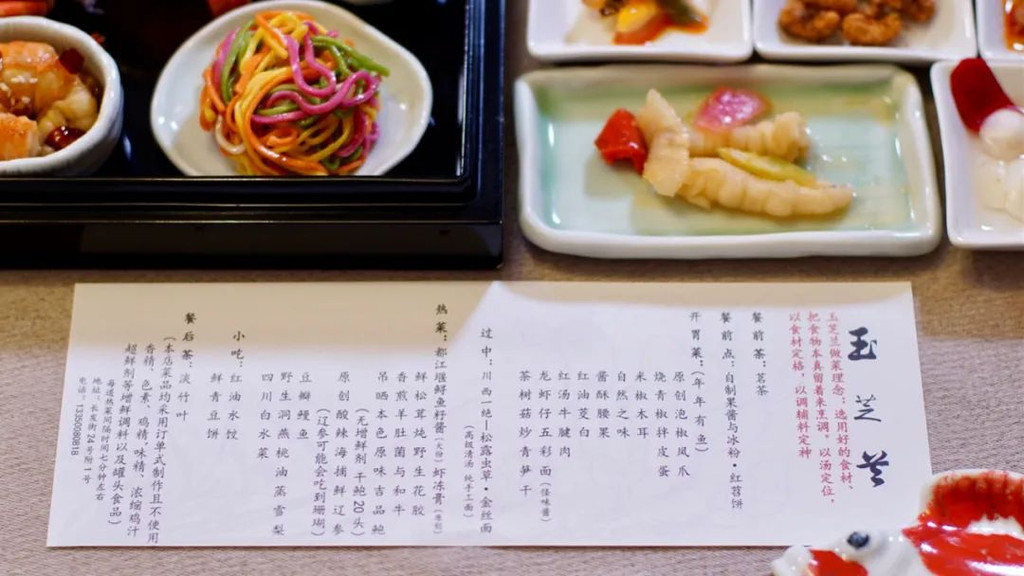 玉芝兰
玉芝兰做菜理念：选用好的食材、
把食物本真留着来烹调。以汤定位，
以食材定格，以调辅料定神
餐前茶：茗茶
餐前点：自制果酱与冰粉·红苕饼
开胃菜：（年年有鱼）
原创泡椒凤爪
烧青椒拌皮蛋
米椒木耳
自然之味
酱酥腰果
红油茭白
红汤牛腱肉
龙虾仔五彩面（怪味酱）
茶树菇炒青笋干
过中：川西一绝—松露虫草·金丝面
（高级清汤 纯手工面）
热菜：都江堰鲟鱼籽酱
虾冻膏
鲜松茸炖野生花胶
香煎羊肚菌与和牛
吊晒本色原味吉品鲍
（无增鲜剂 干鲍20头）
原创酸辣海捕鲜辽参
（辽参可能会吃到珊瑚）
豆瓣鳗鱼
野生洞燕桃油蒸雪梨
四川白水菜
小吃：红油水饺
鲜青豆饼
餐后茶：淡竹叶
（本店菜品均采用订单式制作且不使用
香精、色素、鸡精、味精、浓缩鸡汁
超鲜剂等增鲜调料以及罐头食品）
每道热菜间隔时间七分钟左右
地址：长发街24号附1号
电话：13550080818